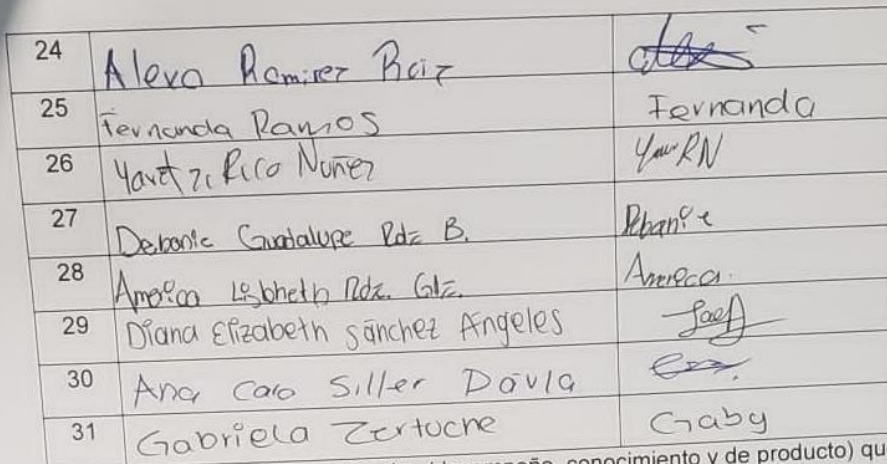 24 Alexa Ramirez Ruiz
25 Fernanda Ramos Fernanda
26 Yaretzi Rico Nuñez RN
27 Debanie Guadalupe Rdz B. Debanie
28 America Lisbheth Rdz. Glz. America.
29 Diana Elizabeth Sánchez Angeles
30 Ana Caro Siller Dávila
31 Gabriela Zertuche Gaby
conocimiento y de producto) qu